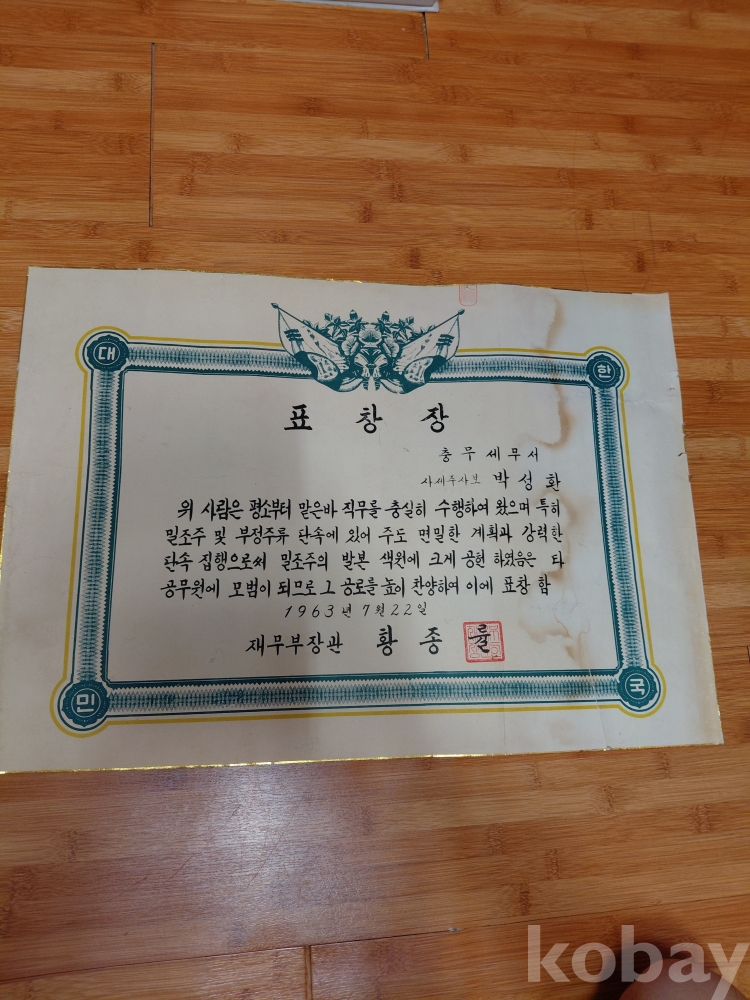 대 한
표 창 장
충무세무서
사세주사보 박성환
위 사람은 평소부터 맡은바 직무를 충실히 수행하여 왔으며 특히
밀조주 및 부정주류 단속에 있어 주도 면밀한 계획과 강력한
단속 집행으로써 밀조주의 발본 색원에 크게 공헌 하였음은 타
공무원에 모범이 되므로 그 공로를 높이 찬양하여 이에 표창 함
1963년 7월 22일
재무부장관 황종률
민 국
kobay